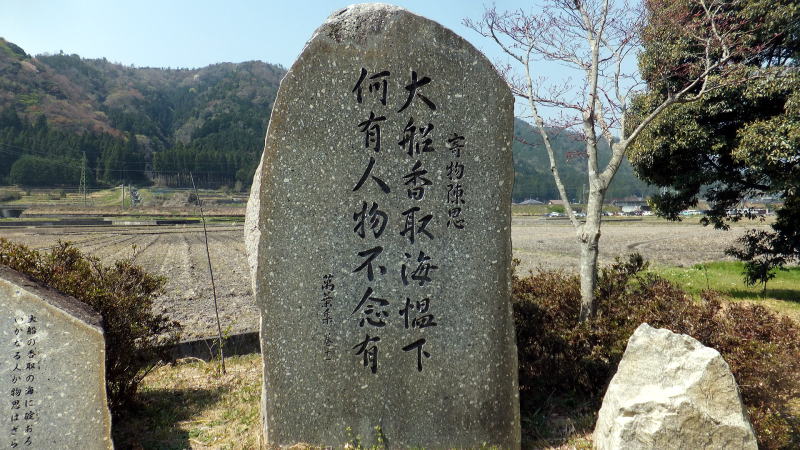 寄物陳思
大船香取海慍下
何有人物不念有
萬葉集
大船の香取の海に碇おろ
いかなる人か物思はざら